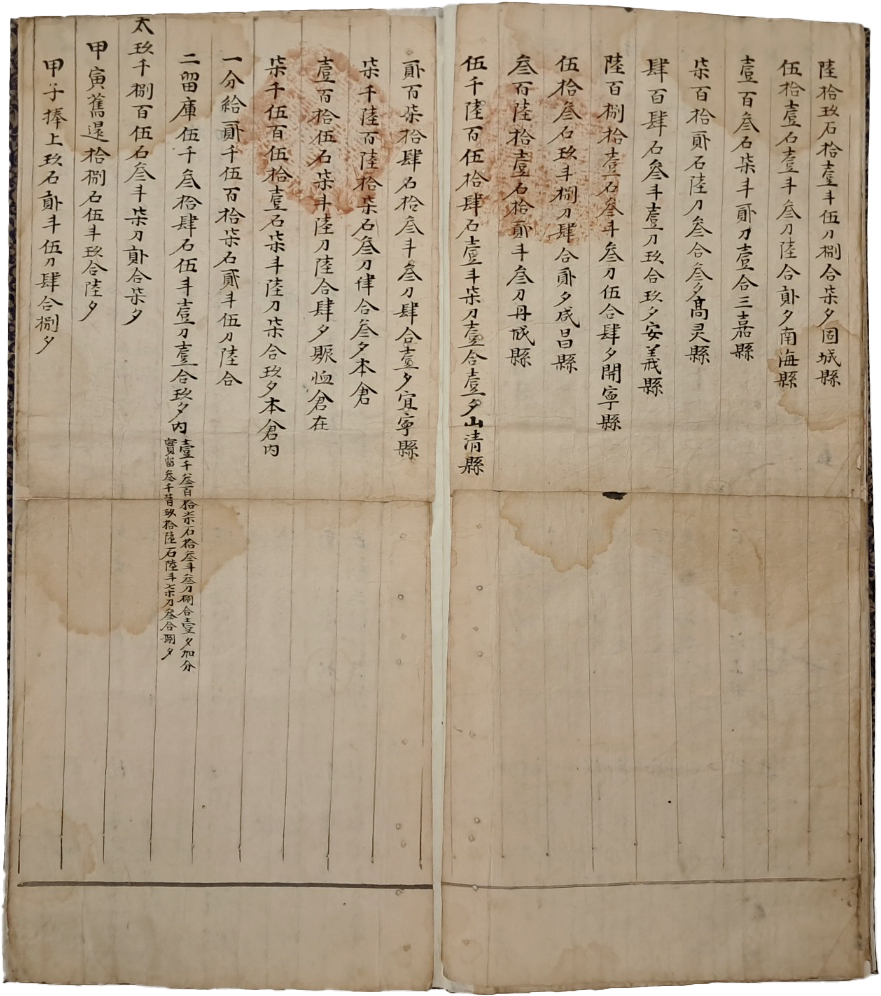 陸拾玖石拾壹斗伍刀捌合柒夕固城縣
伍拾壹石壹斗叁刀陸合貳夕南海縣
壹百叁石柒斗貳刀壹合三嘉縣
柒百拾貳石陸刀叁合叁夕高灵縣
肆百肆石叁斗壹刀玖合玖夕安義縣
陸百捌拾壹石叁斗叁刀伍合肆夕開寧縣
伍拾叁石玖斗捌刀肆合貳夕咸昌縣
叁百陸拾壹石拾貳斗叁刀丹城縣
伍千陸百伍拾肆石壹斗柒刀壹合壹夕山清縣
貳百柒拾肆石拾叁斗叁刀肆合壹夕宜寧縣
柒千陸百陸拾柒石叁刀肆合叁夕本倉
壹百拾伍石柒斗陸刀陸合肆夕賑恤倉在
柒千伍百伍拾壹石柒斗陸刀柒合玖夕本倉內
一分給貳千伍百拾柒石貳斗伍刀陸合
二留庫伍千叁拾肆石伍斗壹刀壹合玖夕內
壹千叁百拾柒石拾叁斗叁刀捌合壹夕加分
實留叁千柒百玖拾陸石陸斗柒刀叁合捌夕
太玖千捌百伍石叁斗柒刀貳合柒夕
甲寅舊還拾捌石伍斗玖合陸夕
甲子捧上玖石貳斗伍刀肆合捌夕